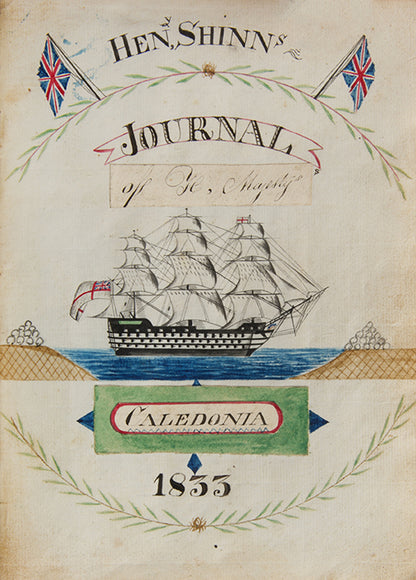 HENY, SHINNS
JOURNAL
off His Majestys
CALEDONIA
1833